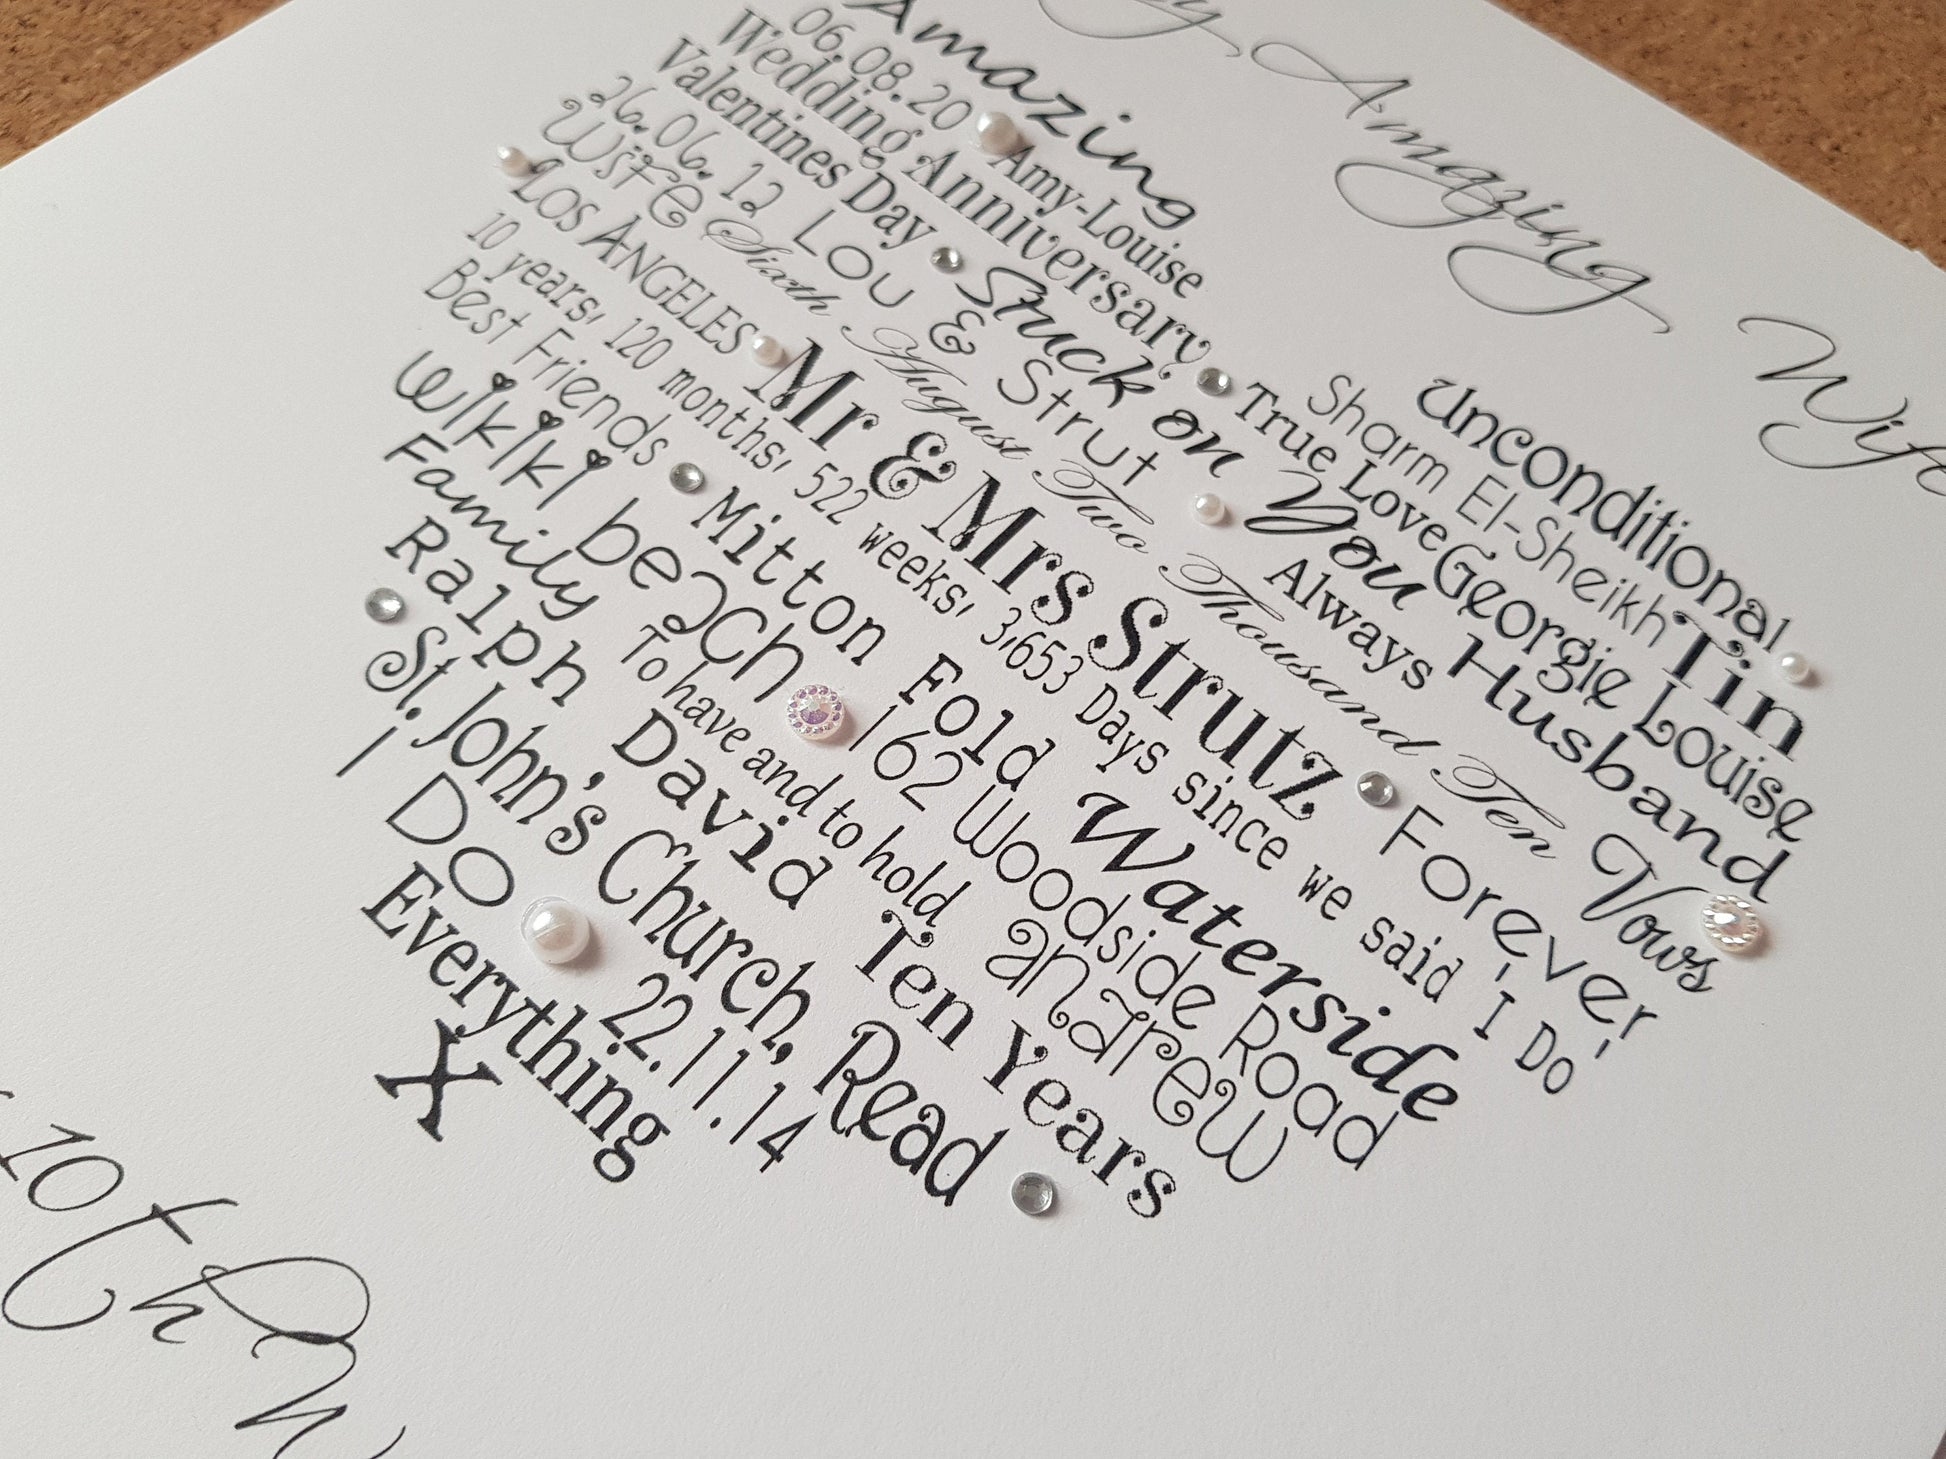 y Amazing Wife
Amazing Unconditional
06.08.20 Amy-Louise Sharm El-Sheikh Tin
Wedding Anniversary True Love Georgie Louise
Valentines Day Stuck on You Husband
26.06.12 Lou & Strut Always Vows
Wife Sixth August Two Thousand Ten
LOS ANGELES Mr & Mrs Strutz Forever
10 years, 120 months, 522 weeks, 3,653 Days since we said 'I Do'
Best Friends Mitton Fold Waterside
Wikiki beach 162 Woodside Road
Family To have and to hold andrew
Ralph David Ten Years
St. John's Church, Read
I Do 22.11.14
Everything
X
10th W